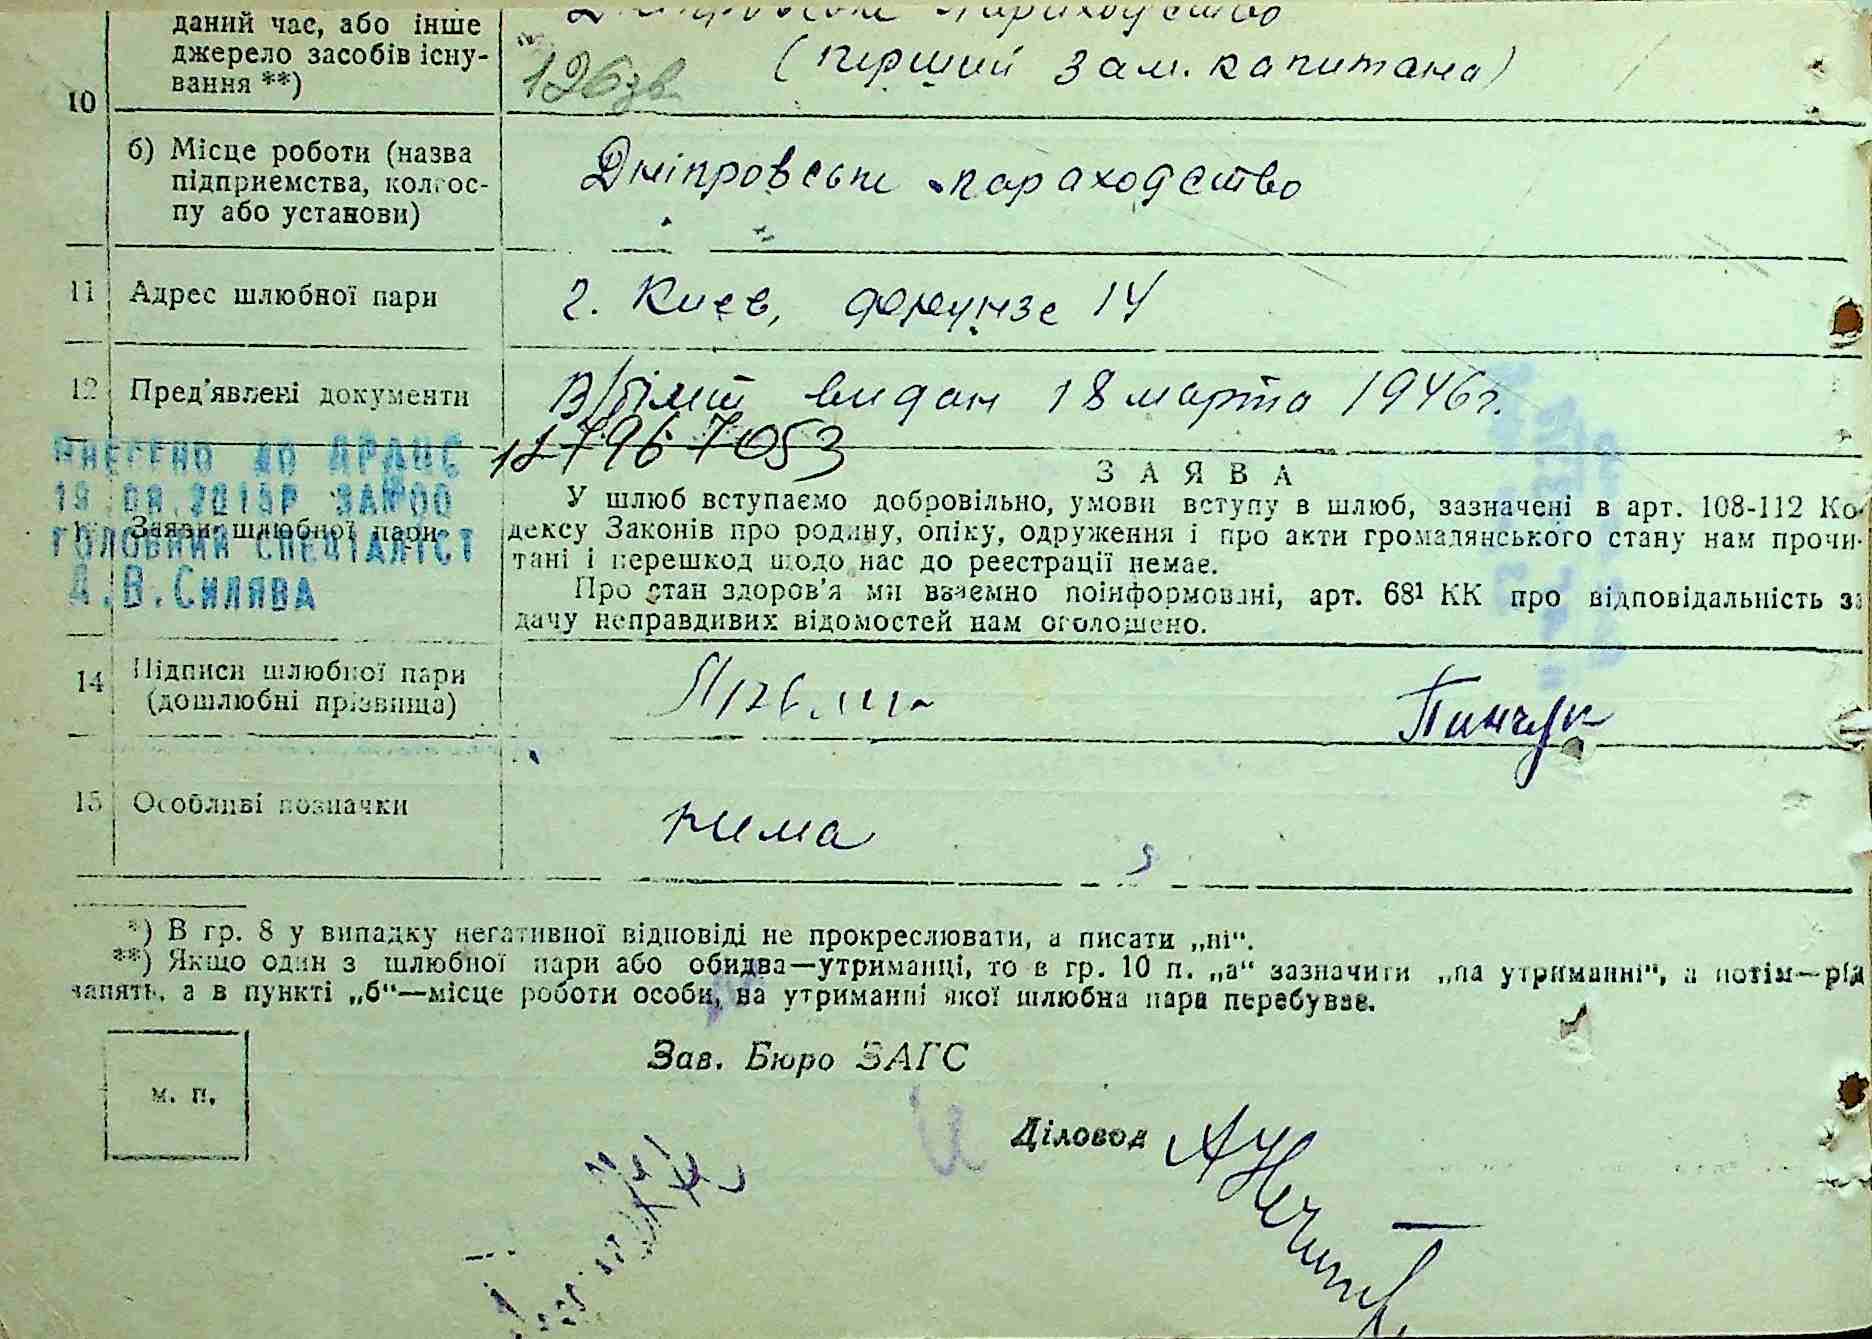 даний час, або інше
джерело засобів існу-
вання **)
Дніпровське Параходство
(перший зам. капитана)
126зв
10
б) Місце роботи (назва
підприємства, колгос-
пу або установи)
Дніпровське параходство
11 Адрес шлюбної пари
г. Киев, Фрунзе 14
12 Пред'явлені документи
В/білет видан 18 марта 1946г.
ВНЕСЕНО ДО ДРАЦС
ГОЛОВНИЙ СПЕЦІАЛІСТ
Д.В.СИЛЯВА
Заяви шлюбної пари
ЗАЯВА
У шлюб вступаємо добровільно, умови вступу в шлюб, зазначені в арт. 108-112 Ко-
дексу Законів про родину, опіку, одруження і про акти громадянського стану нам прочи-
тані і перешкод щодо нас до реестрації немає.
Про стан здоров'я ми взаємно поінформовані, арт. 68¹ КК про відповідальність за
дачу неправдивих відомостей нам оголошено.
14 Підписи шлюбної пари
(дошлюбні прізвища)
Пинчук
15 Особливі позначки
нима
*) В гр. 8 у випадку негативної відповіді не прокреслювати, а писати „ні“.
**) Якщо один з шлюбної пари або обидва—утриманці, то в гр. 10 п. „а“ зазначити „на утриманні“, а потім—рід
занять, а в пункті „б“—місце роботи особи, на утриманні якої шлюбна пара перебуває.
м. п.
Зав. Бюро ЗАГС
Діловод